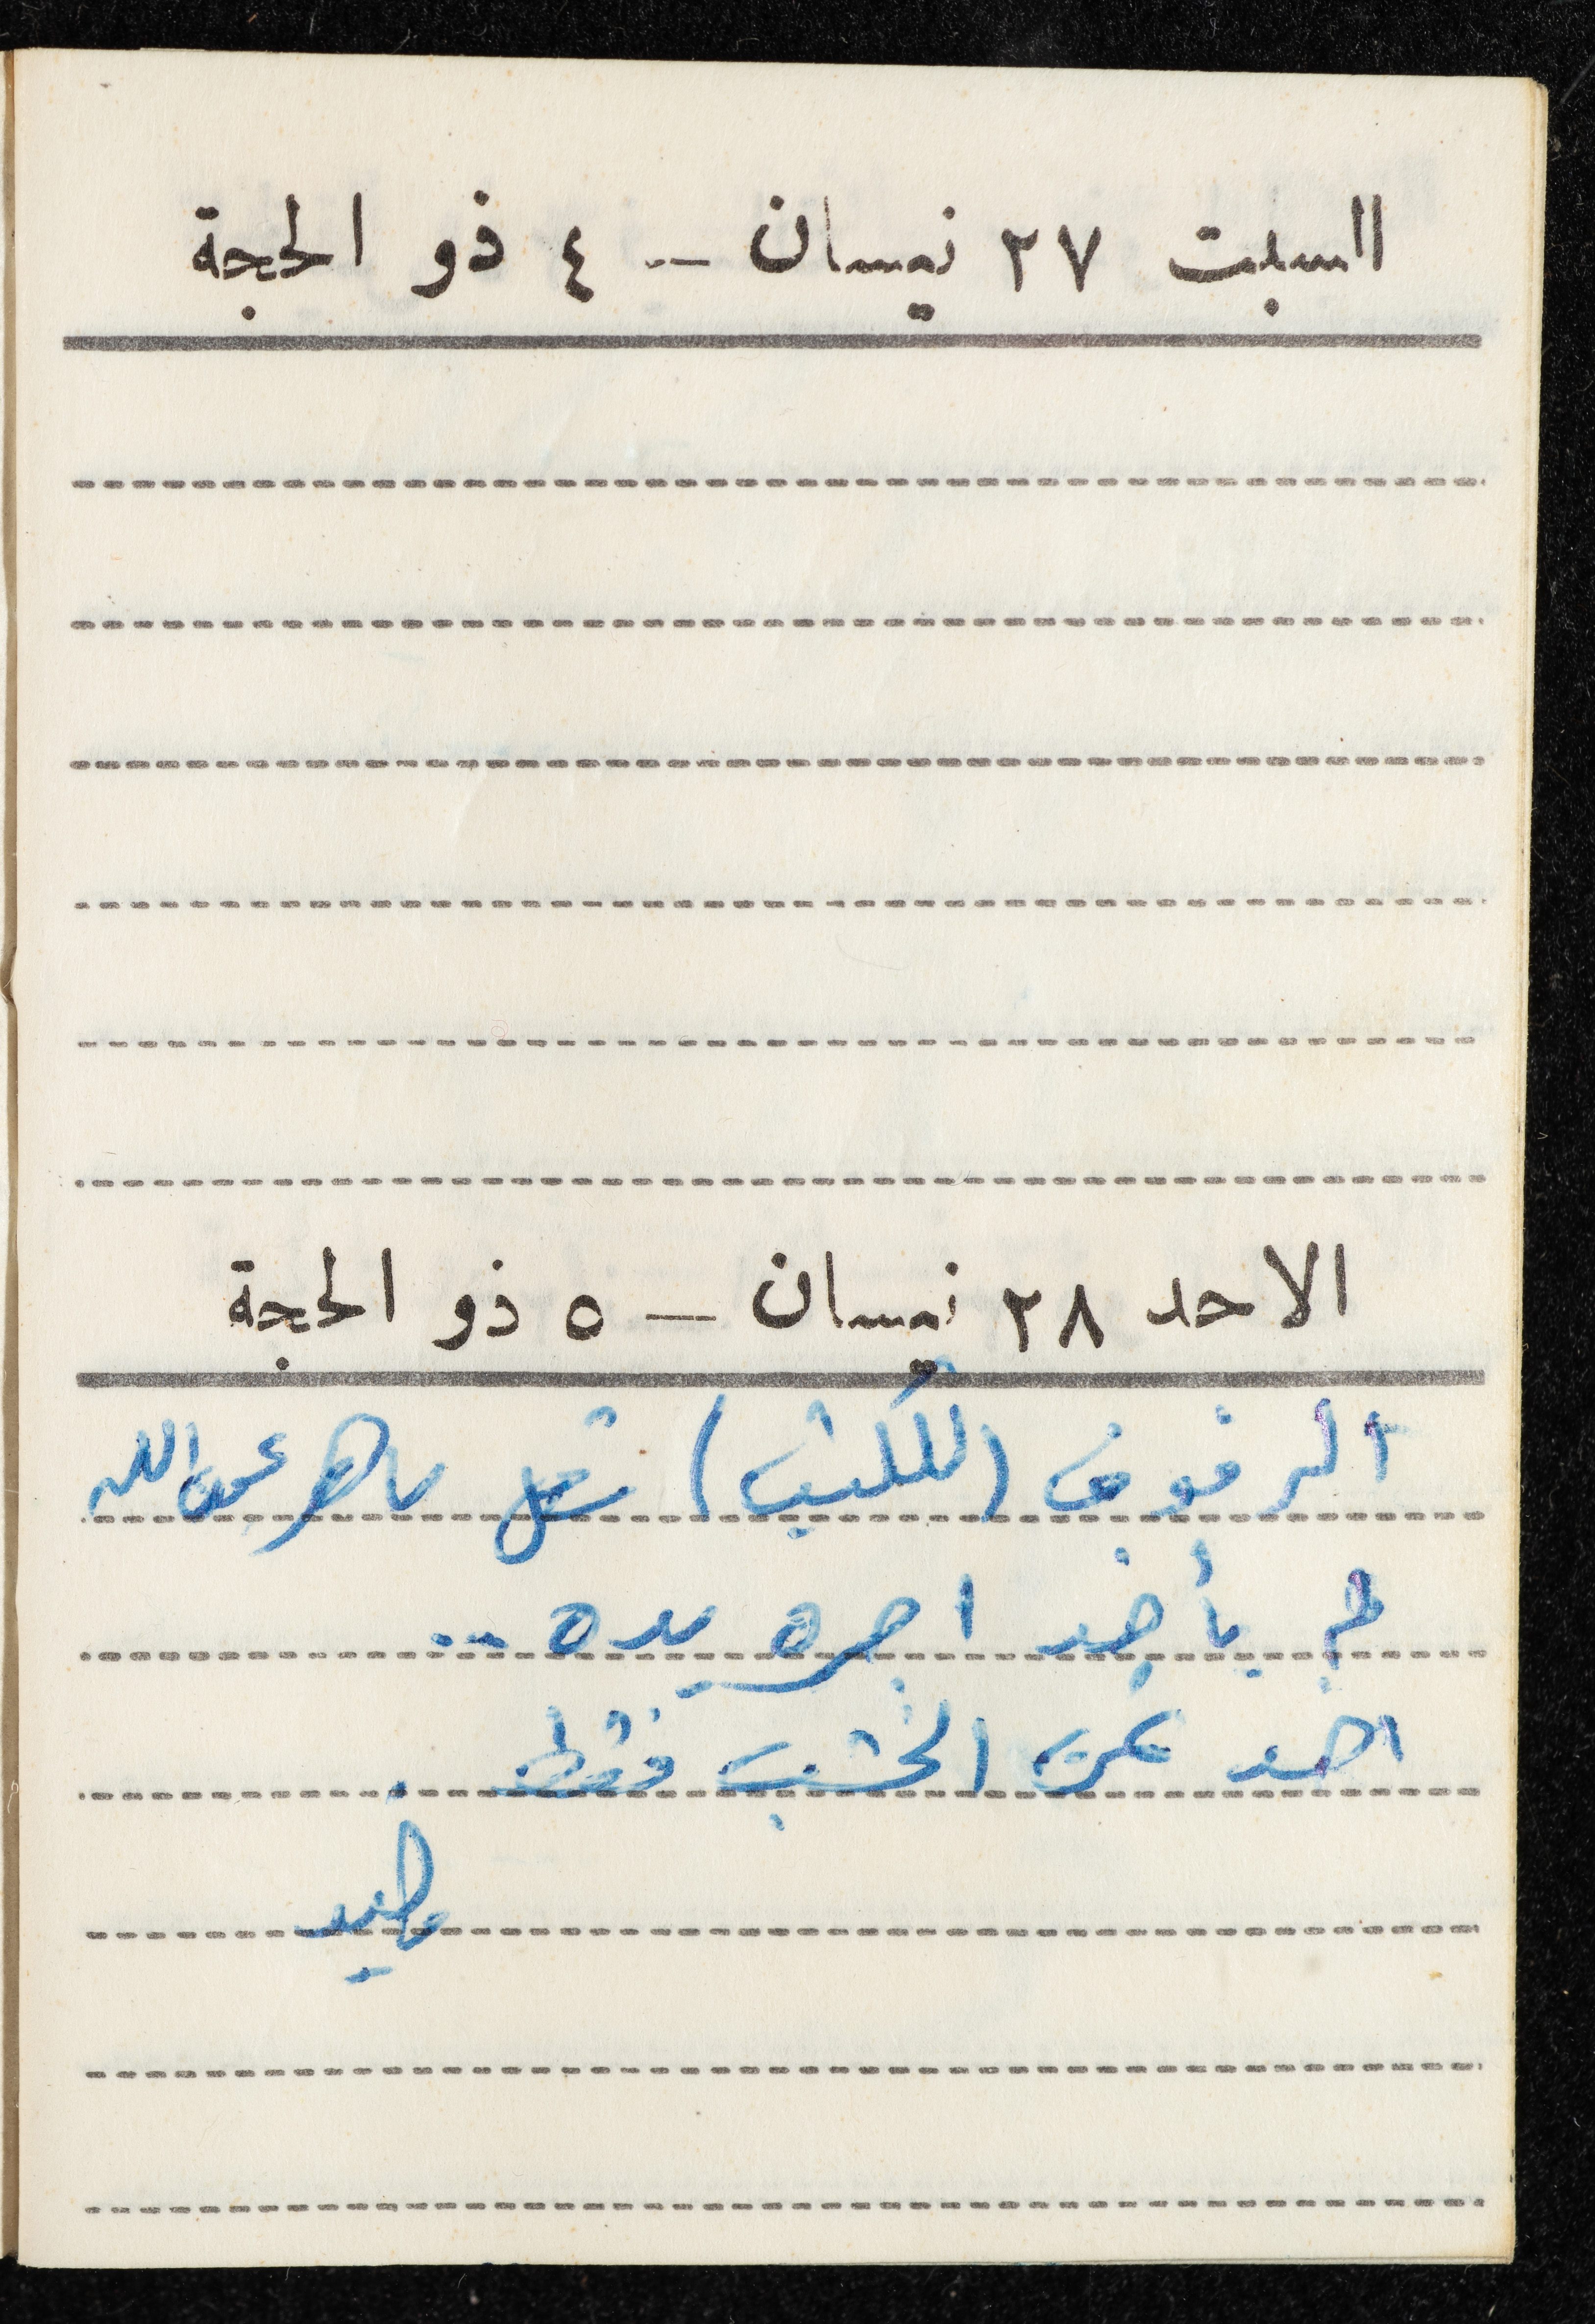 السبت ٢٧ نيسان — ٤ ذو الحجة
الاحد ٢٨ نيسان — ٥ ذو الحجة
الرفوف (للكتب) شغل ماهر عبدالله
لم يأخذ اجره يده --
اخد ثمن الخشب فقط .
وليد